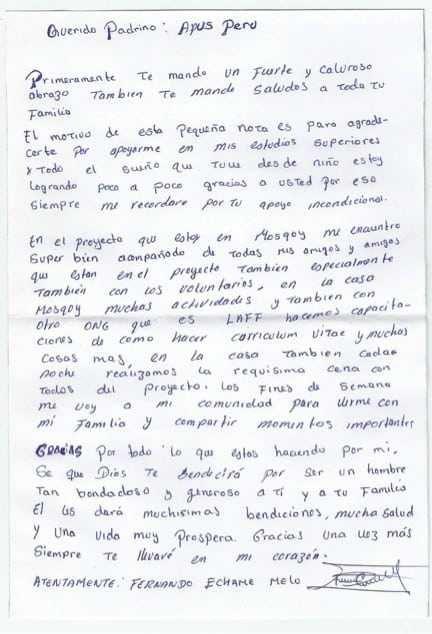 Querido Padrino: APUS PERU
Primeramente Te mando un Fuerte y caluroso
abrazo Tambien Te mando Saludos a Toda tu
Familia
El motivo de esta Pequeña nota es para agrade-
certe por apoyarme en mis estudios Superiores
y Todo el sueño que Tuve desde niño estoy
Logrando poco a poco gracias a usted por eso
Siempre me recordare por Tu apoyo incondicional.
En el proyecto que estoy en Mosqoy me encuentro
Super bien acompañado de Todas mis amigos y amigas
que estan en el proyecto Tambien especialmente
Tambien con los voluntarios, en la casa
Mosqoy muchas actividades y Tambien con
otro ONG que es LAFF hacemos capacita-
ciones de como hacer curriculum vitae y muchos
cosas mas, en la casa Tambien cadas
noche realizamos la requisima cena con
Todos del proyecto. Los Fines de Semana
me voy a mi comunidad para unirme con
mi Familia y compartir momentos importantes
GRACIAS Por todo lo que estas haciendo por mi,
Se que Dios Te Bendecirá por ser un hombre
Tan bondadoso y generoso a Ti y a tu Familia
El les dará muchisimas bendiciones, mucha salud
y una vida muy Prospera. Gracias una vez más
Siempre Te llevaré en mi corazón.
ATENTAMENTE: FERNANDO ECHAME MELO